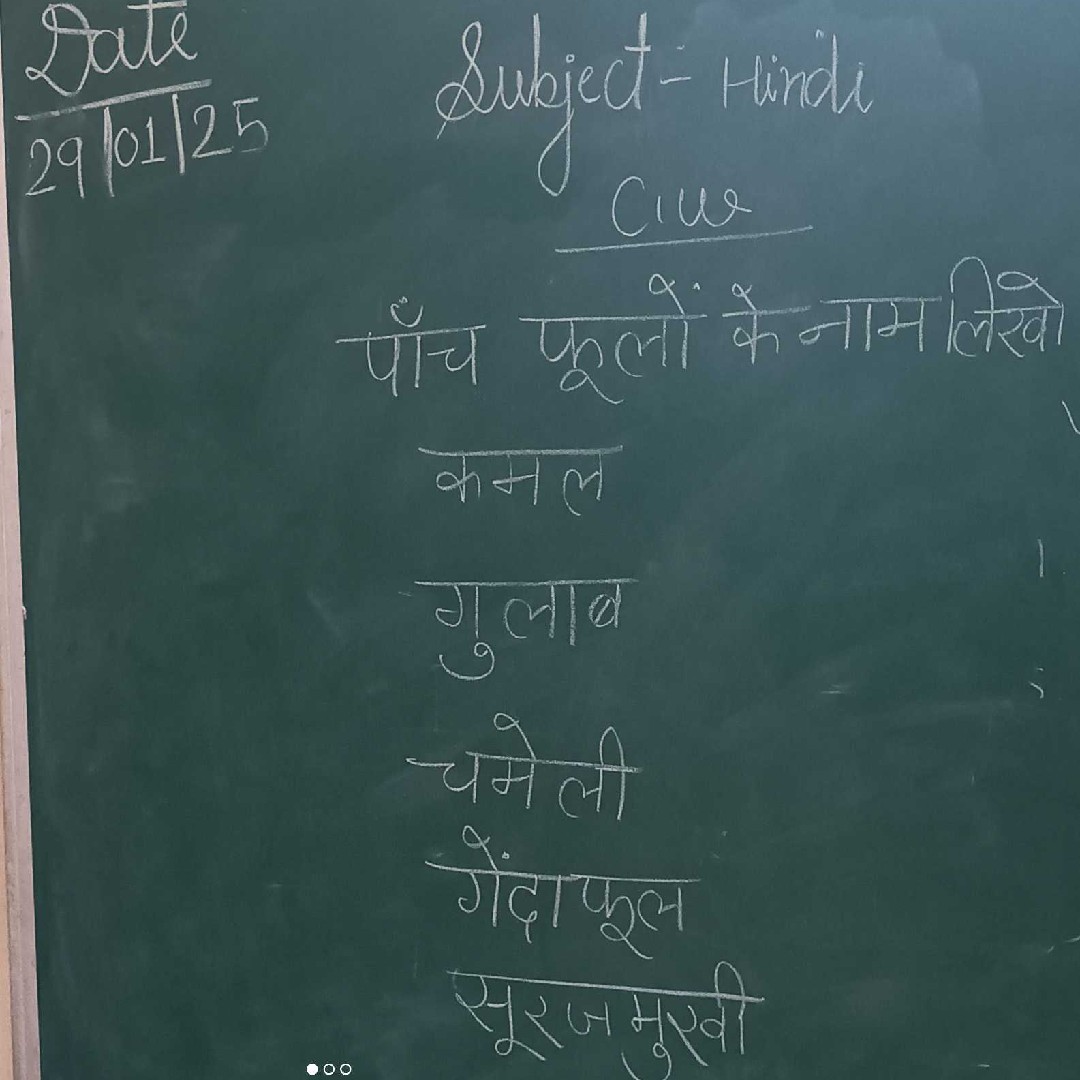 Date
29/01/25
Subject - Hindi
C.W
पाँच फूलों के नाम लिखो
कमल
गुलाब
चमेली
गेंदा फूल
सूरजमुखी